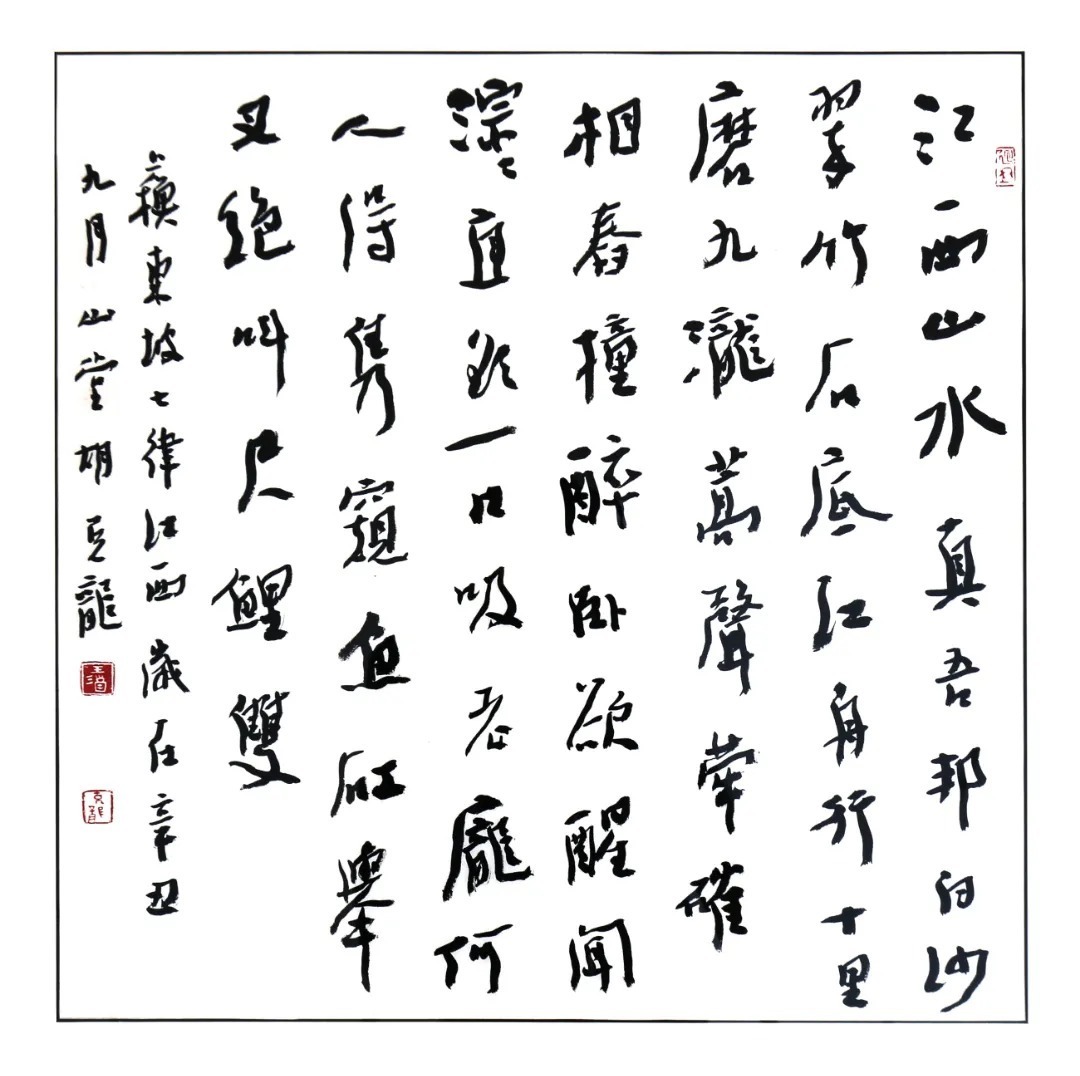 江西山水真吾邦白沙
翠竹石底江舟行十里
磨九瀧蒿聲犖確
相舂撞醉臥欲醒聞
淙淙直欲一口吸老龐何
人得雋窺魚矼舉
叉絕叫尺鯉雙
蘇東坡七律江西歲在辛丑
九月山堂胡克龍